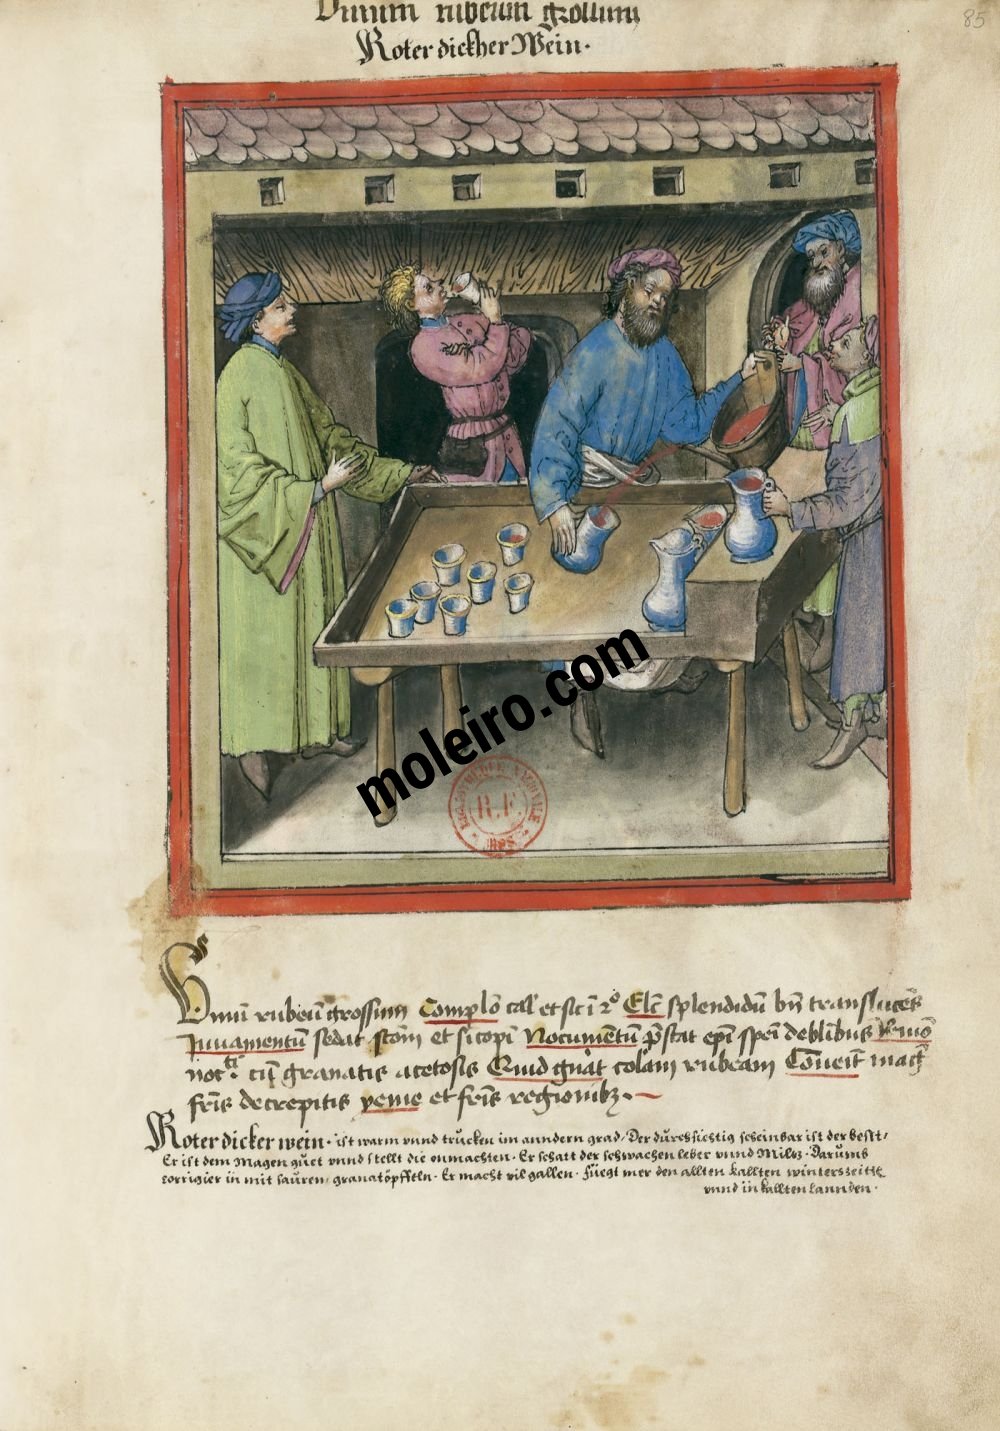 Vinum rubeum grossum
Roter dickher Wein·
85
moleiro.com
BIBLIOTHEQUE NATIONALE
R.F.
MSS
Vinū rubeū grossum Complō cal' et sic̄ i 2° Elc̄ splendidū bn̄ translucēs
Juuamentū sedat et sicopi Nocumētū p̄stat epī spēi deblibus Remō
noc̄ti: cū granatis acetosis Quid gnāt colam rubeam Cōueit mac̄
fr̄is decrepitis yeme et fr̄is regionibꝫ·
Roter dicker wein· ist warm vnnd trucken im anndern grad/ Der durchsichtig scheinbar ist der besst/
Er ist dem Magen guet vnnd stellt die onmachten· Er schatt der schwachen leber vnnd Miltz· Darumb
corrigier in mit sauren/ granatöpffeln· Er macht vil gallen· füegt mer den allten kallten winterszeitte
vnnd in kallten lannden·